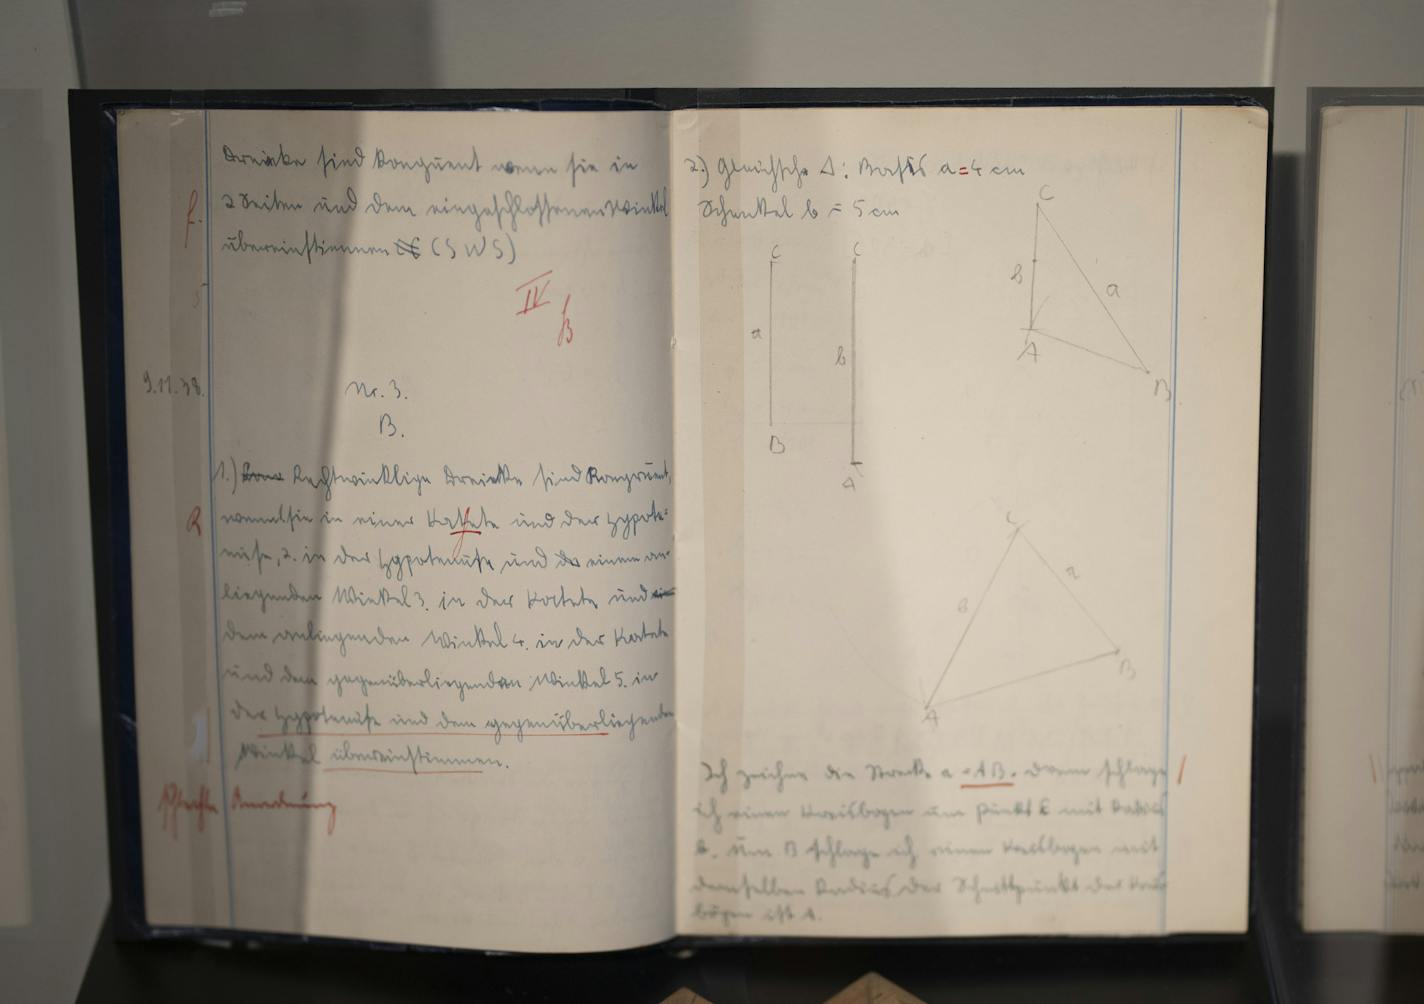 Dreiecke sind kongruent wenn sie in
f.
2 Seiten und dem eingeschlossenen Winkel
übereinstimmen (SWS)
IV
B
9.11.38.
Nr. 3.
B.
1.) Rechtwinklige Dreiecke sind kongruent,
R
wenn sie in einer Kathete und der Hypote-
nuse, 2. in der Hypotenuse und einem an-
liegenden Winkel 3. in der Kathete und
dem anliegenden Winkel 4. in der Kathete
und dem gegenüberliegenden Winkel 5. in
der Hypotenuse und dem gegenüberliegenden
Winkel übereinstimmen.
Schlechte Anordnung
2.) Gleichsch. Δ: Basis a = 4 cm
Schenkel b = 5 cm
C
C C
b
a
a
b
A
B
B
A
C
a
b
B
A
Ich zeichne die Strecke a = AB. Dann schlage
ich einen Kreisbogen um Punkt C mit Radius
b. Um B schlage ich einen Kreisbogen mit
demselben Radius, der Schnittpunkt der Kreis
bögen ist A.